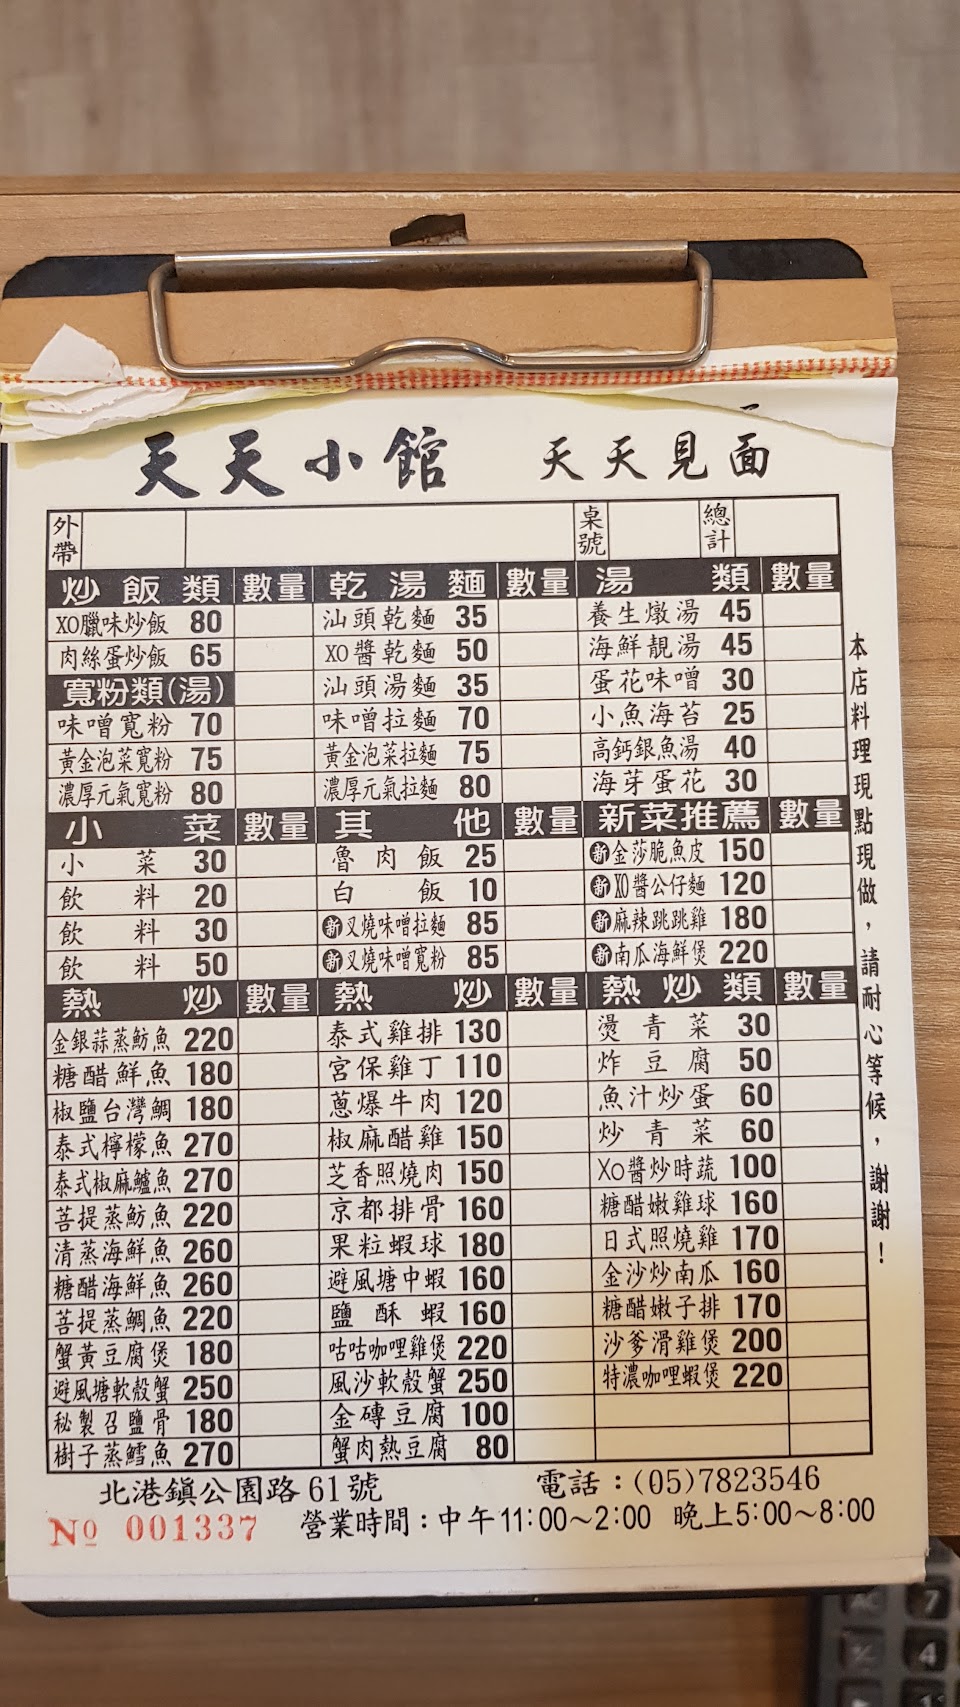 天天小館 天天見面
外帶 桌號 總計
炒飯類 數量 乾湯麵 數量 湯類 數量
XO臘味炒飯 80 汕頭乾麵 35 養生燉湯 45
肉絲蛋炒飯 65 XO醬乾麵 50 海鮮靚湯 45
寬粉類(湯) 汕頭湯麵 35 蛋花味噌 30
味噌寬粉 70 味噌拉麵 70 小魚海苔 25
黃金泡菜寬粉 75 黃金泡菜拉麵 75 高鈣銀魚湯 40
濃厚元氣寬粉 80 濃厚元氣拉麵 80 海芽蛋花 30
小菜 數量 其他 數量 新菜推薦 數量
小菜 30 魯肉飯 25 新金莎脆魚皮 150
飲料 20 白飯 10 新XO醬公仔麵 120
飲料 30 新叉燒味噌拉麵 85 新麻辣跳跳雞 180
飲料 50 新叉燒味噌寬粉 85 新南瓜海鮮煲 220
熱炒 數量 熱炒 數量 熱炒類 數量
金銀蒜蒸魴魚 220 泰式雞排 130 燙青菜 30
糖醋鮮魚 180 宮保雞丁 110 炸豆腐 50
椒鹽台灣鯛 180 蔥爆牛肉 120 魚汁炒蛋 60
泰式檸檬魚 270 椒麻醋雞 150 炒青菜 60
泰式椒麻鱸魚 270 芝香照燒肉 150 XO醬炒時蔬 100
菩提蒸魴魚 220 京都排骨 160 糖醋嫩雞球 160
清蒸海鮮魚 260 果粒蝦球 180 日式照燒雞 170
糖醋海鮮魚 260 避風塘中蝦 160 金沙炒南瓜 160
菩提蒸鯛魚 220 鹽酥蝦 160 糖醋嫩子排 170
蟹黃豆腐煲 180 咕咕咖哩雞煲 220 沙爹滑雞煲 200
避風塘軟殼蟹 250 風沙軟殼蟹 250 特濃咖哩蝦煲 220
秘製召鹽骨 180 金磚豆腐 100
樹子蒸鱈魚 270 蟹肉熱豆腐 80
本店料理現點現做，請耐心等候，謝謝！
北港鎮公園路61號 電話：(05)7823546
No 001337 營業時間：中午11:00～2:00 晚上5:00～8:00
AC 7
4